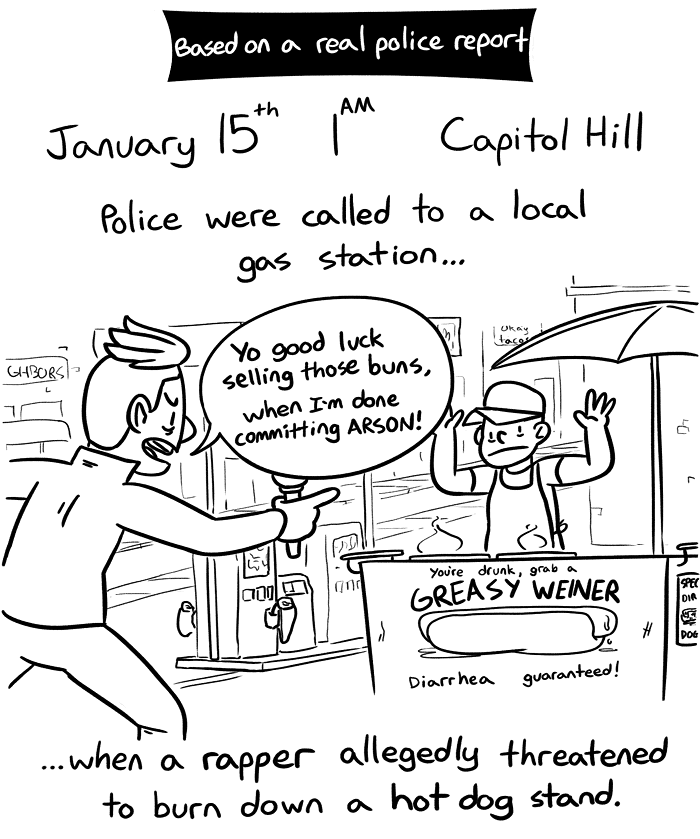 Based on a real police report
January 15th 1AM Capitol Hill
Police were called to a local
gas station...
GHBORS
okay
tacos
Yo good luck
selling those buns,
when I'm done
committing ARSON!
You're drunk, grab a
GREASY WEINER
Diarrhea guaranteed!
SPEC
DIR
DOG
...when a rapper allegedly threatened
to burn down a hot dog stand.